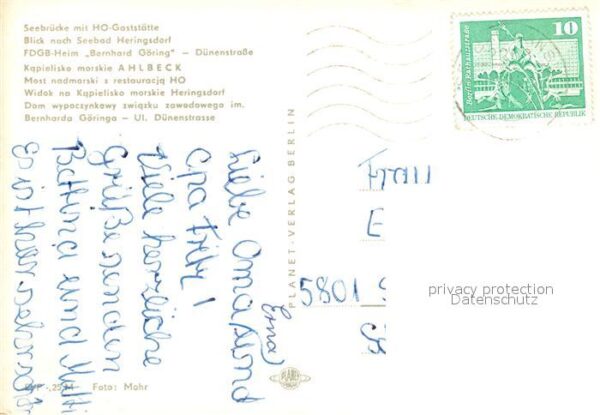 Seebrücke mit HO-Gaststätte
Blick nach Seebad Heringsdorf
FDGB-Heim „Bernhard Göring" – Dünenstraße
Kąpielisko morskie AHLBECK
Most nadmorski s restauracją HO
Widok na Kąpielisko morskie Heringsdorf
Dom wypoczynkowy związku zawodowego im.
Bernharda Göringa – Ul. Dünenstrasse
10
Berlin, Rathausstraße
DEUTSCHE DEMOKRATISCHE REPUBLIK
PLANET-VERLAG BERLIN
Liebe Oma und
(Erna)
Opa Fritz!
Viele herzliche
Grüße senden
Bettina und
Es ist hier sehr
Frau
E
5801
privacy protection
Datenschutz
PLANET
Foto: Mohr